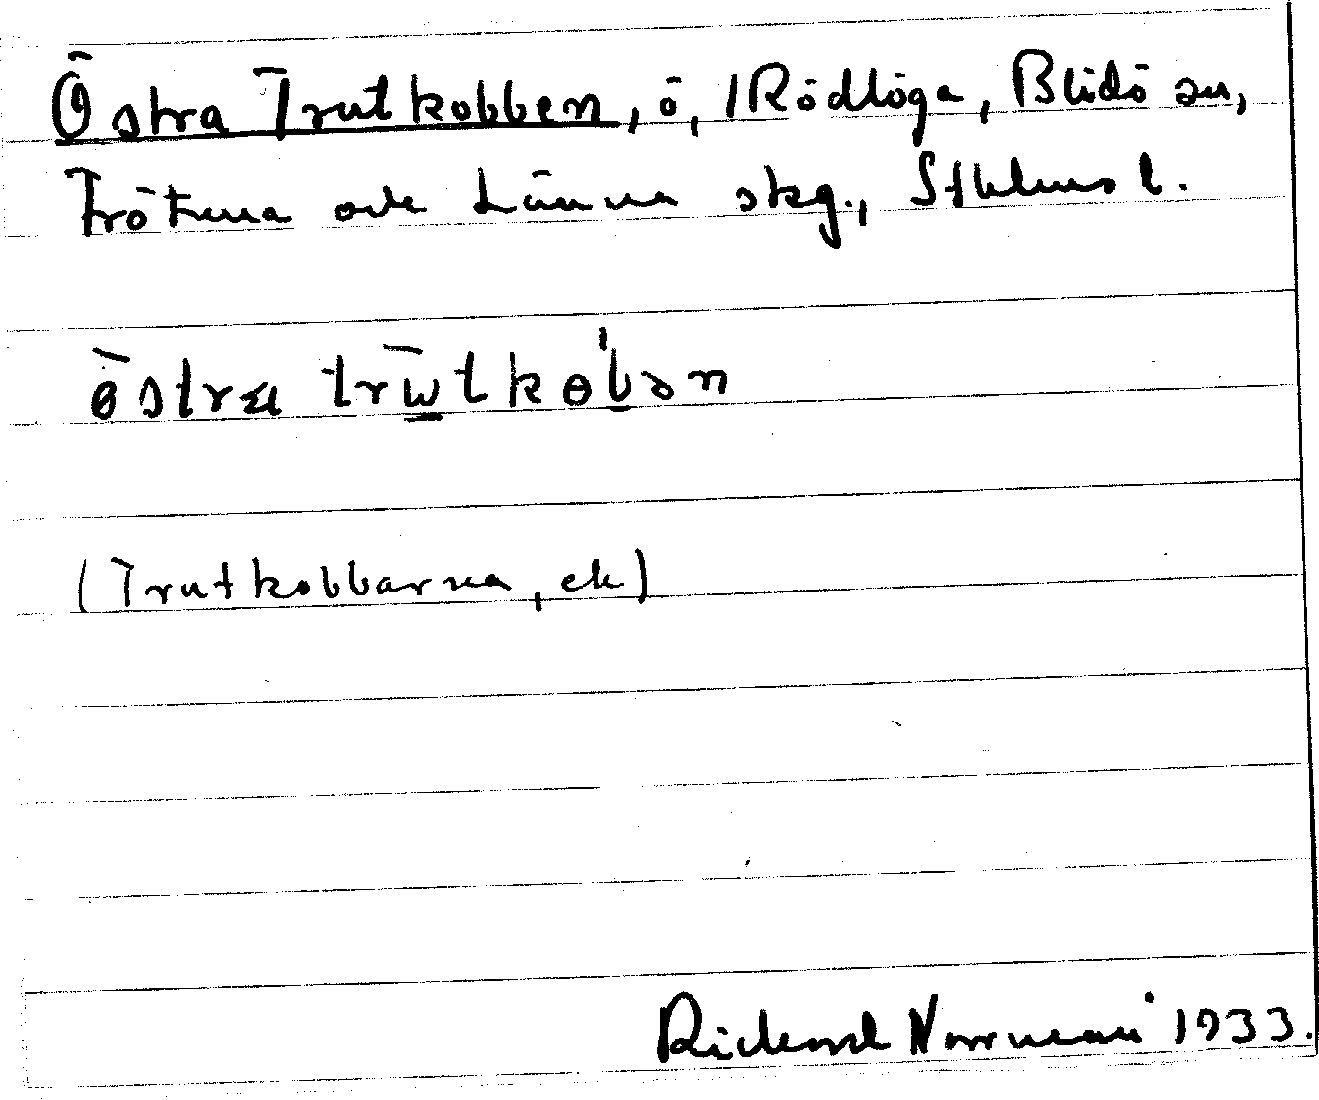 Östra Trutkobben, ö, i Rödlöga, Blidö sn,
Frötuna och Länna skg., Sthlms l.
östra trutkobən
(Trutkobbarna, ek)
Rickard Norrman 1933.